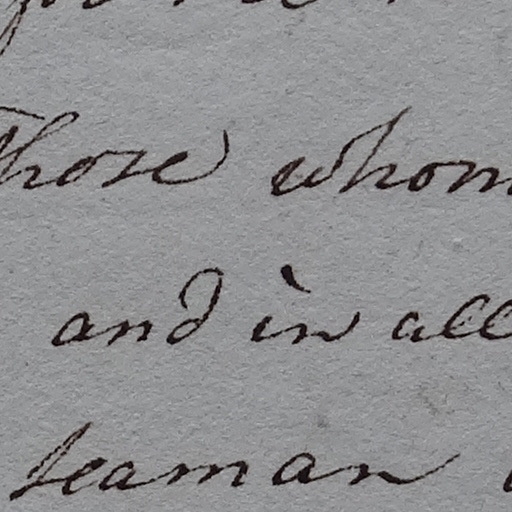 Those whom
and in all
seaman